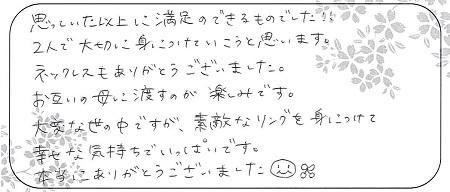 思っていた以上に満足のできるものでした!!
2人で大切に身につけていこうと思います。
ネックレスもありがとうございました。
お互いの母に渡すのが楽しみです。
大変な世の中ですが、素敵なリングを身につけて
幸せな気持ちでいっぱいです。
本当にありがとうございました